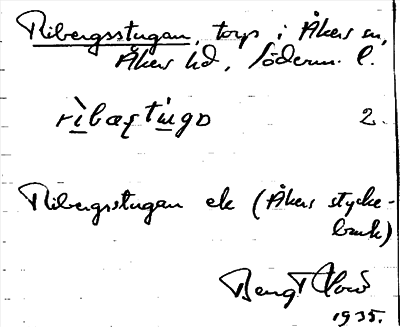 Ribergsstugan, torp i Åkers sn,
Åkers hd, Söderm. l.
rìbæṣtùgo 2.
Ribergsstugan ek (Åkers stycke-
bruk)
Bengt
1935.